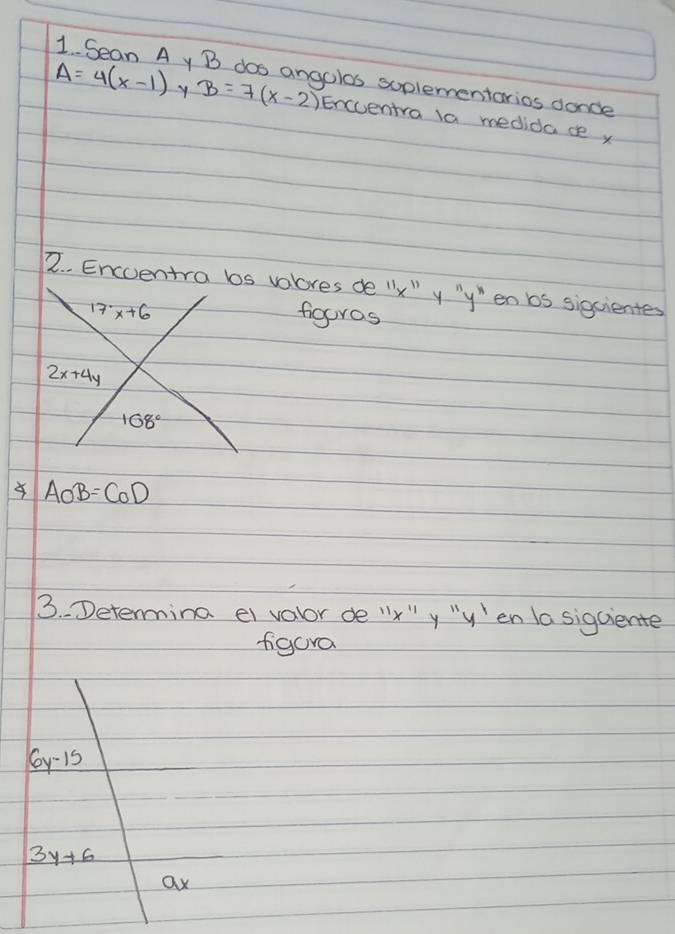 1.- Sean A y B dos angulos suplementarios donde
A = 4(x-1) y B = 7(x-2) Encuentra la medida de x
2.- Encuentra los valores de "x" y "y" en los siguientes
figuras
17x+6
2x+4y
108°
∡ AOB = COD
3.- Determina el valor de "x" y "y' en la siguiente
figura
6y-15
3y+6
9x